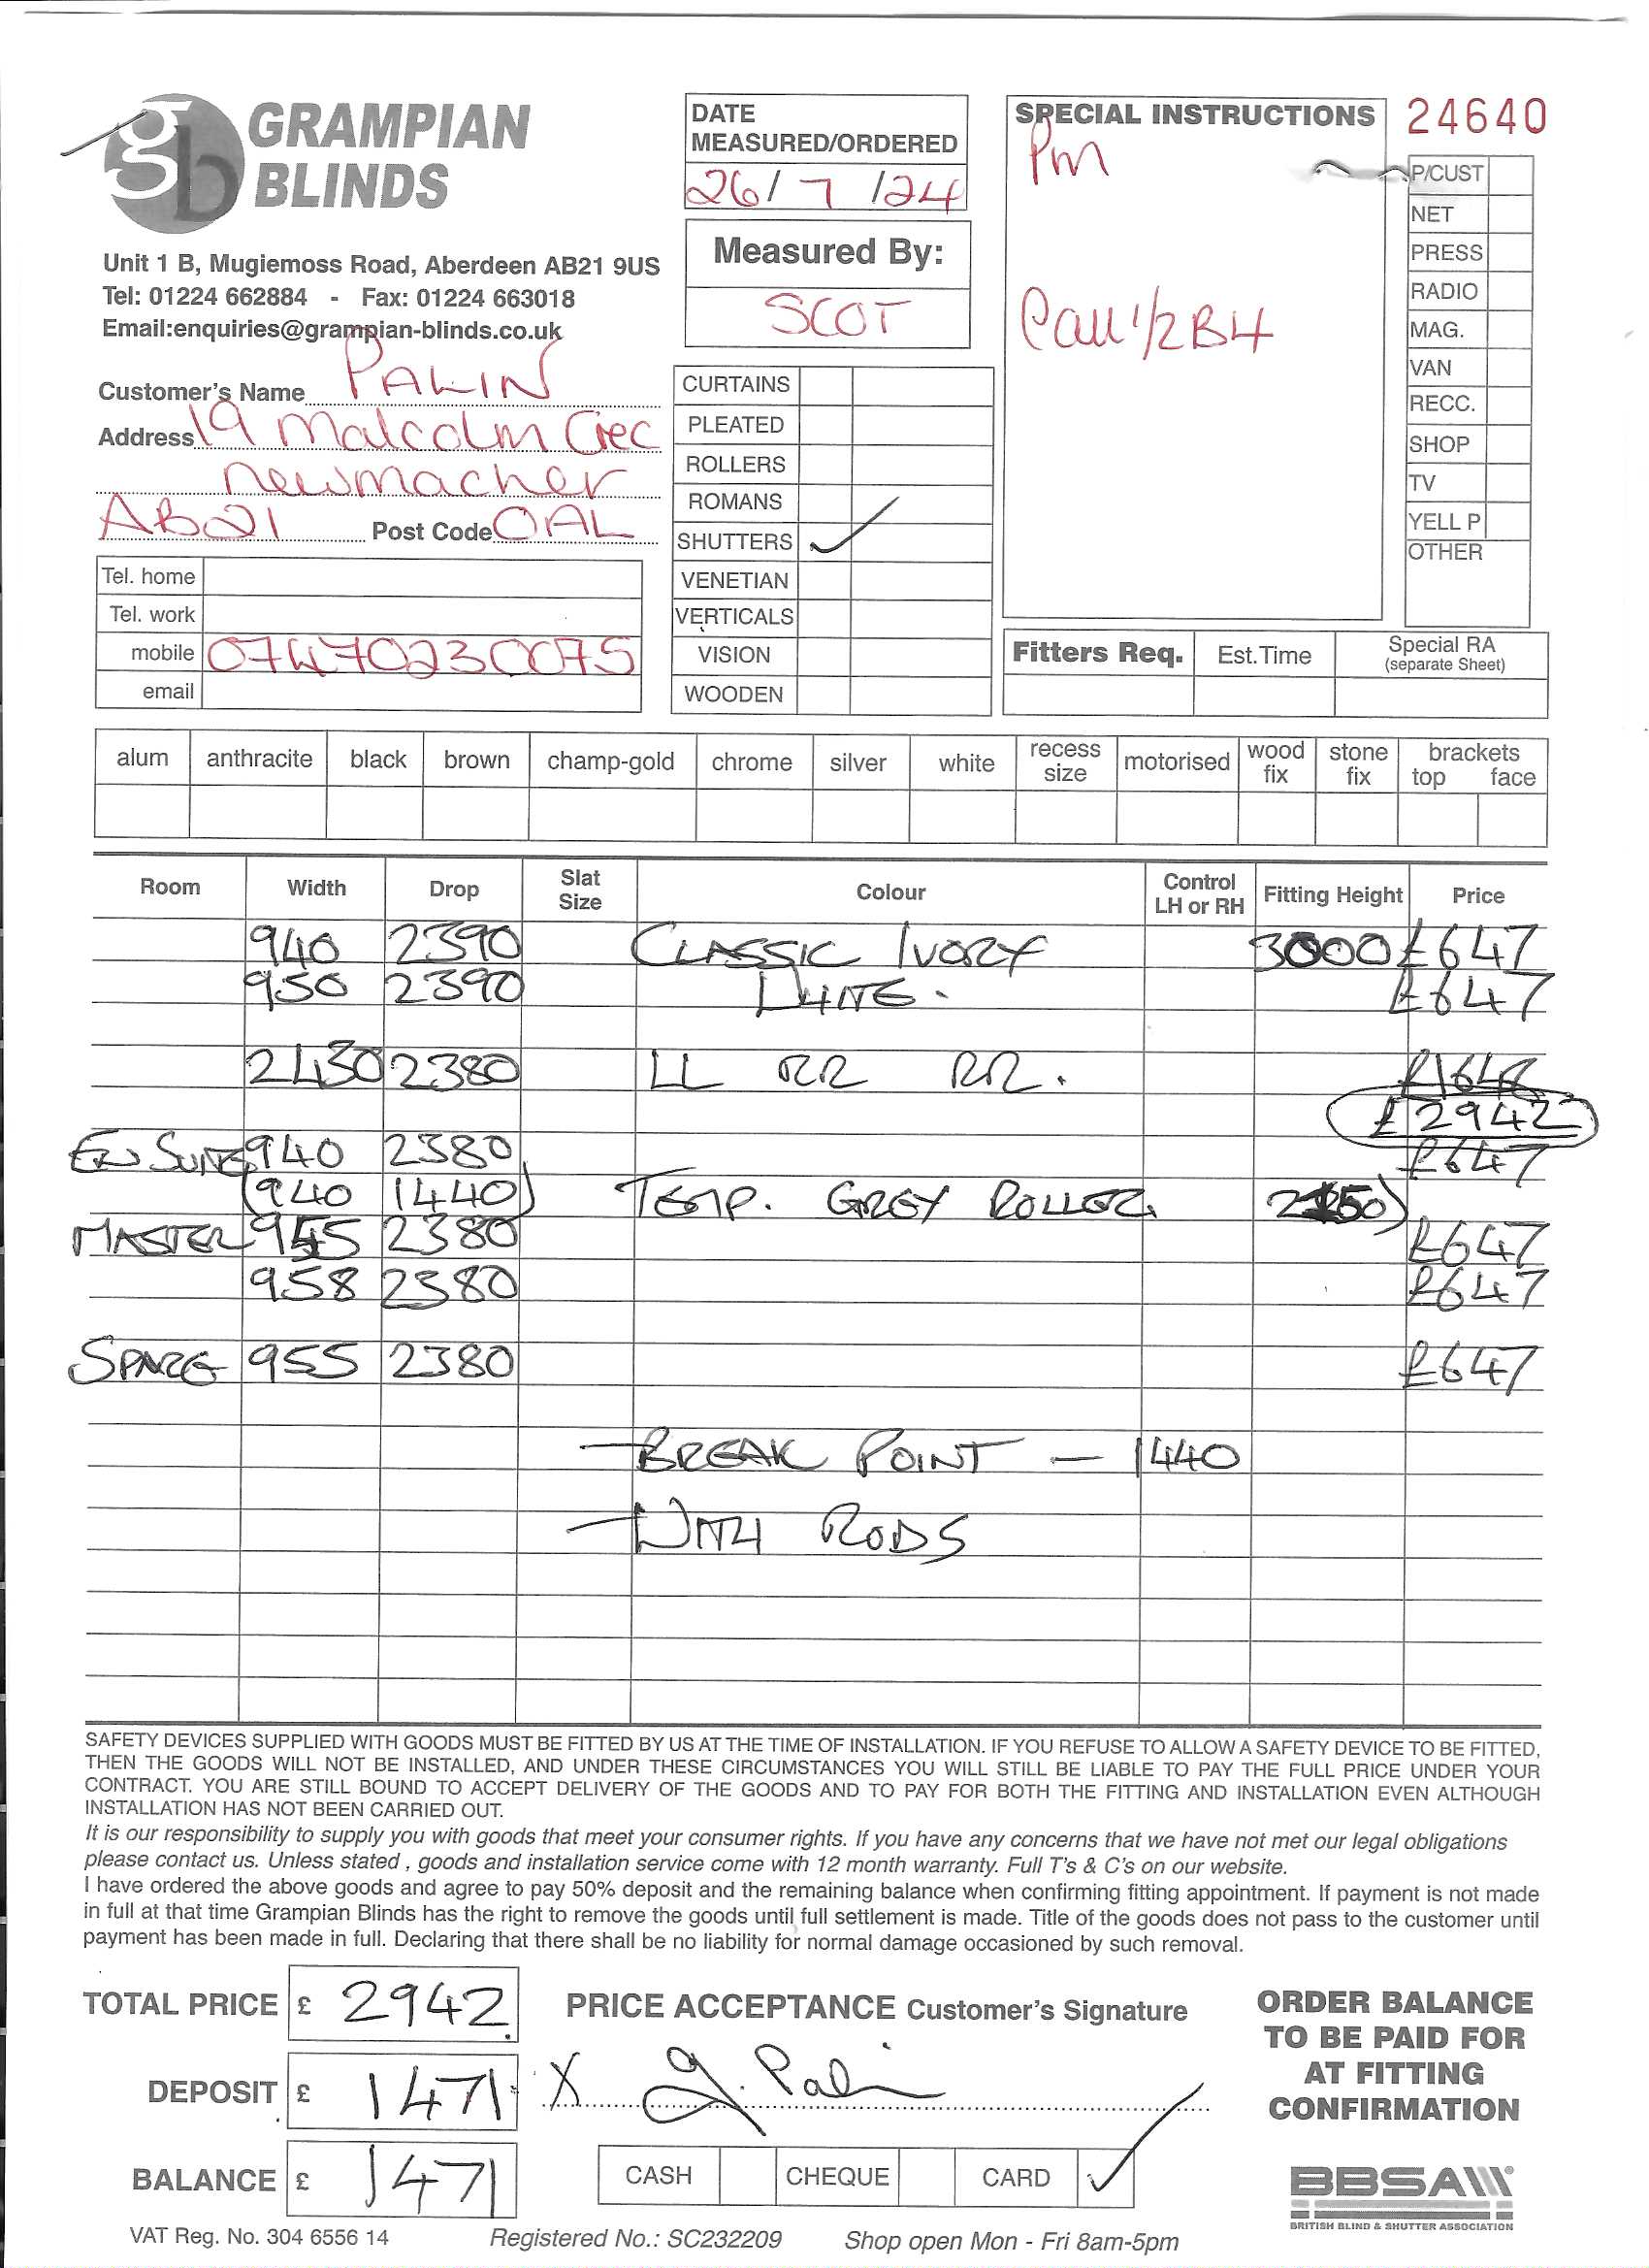 gb GRAMPIAN BLINDS
Unit 1 B, Mugiemoss Road, Aberdeen AB21 9US
Tel: 01224 662884 - Fax: 01224 663018
Email:enquiries@grampian-blinds.co.uk
DATE MEASURED/ORDERED
26/7/24
Measured By:
SCOT
SPECIAL INSTRUCTIONS
Pm
Call 1/2 B4
24640
P/CUST
NET
PRESS
RADIO
MAG.
VAN
RECC.
SHOP
TV
YELL P
OTHER
Customer's Name PALIN
Address 19 Malcolm Crec
Newmacher
AB21 Post Code 0AL
Tel. home
Tel. work
mobile 07470230075
email
CURTAINS
PLEATED
ROLLERS
ROMANS
SHUTTERS ✓
VENETIAN
VERTICALS
VISION
WOODEN
Fitters Req. Est.Time Special RA (separate Sheet)
alum anthracite black brown champ-gold chrome silver white recess size motorised wood fix stone fix brackets top face
Room Width Drop Slat Size Colour Control LH or RH Fitting Height Price
940 2390 CLASSIC IVORY 3000 £647
950 2390 £647
2430 2380 LL RR RR. £1648
£2942
EN SUITE 940 2380 £647
(940 1440) TEMP. GREY ROLLER 2150)
MASTER 955 2380 £647
958 2380 £647
SPARE 955 2380 £647
- BREAK POINT - 1440
- WITH RODS
SAFETY DEVICES SUPPLIED WITH GOODS MUST BE FITTED BY US AT THE TIME OF INSTALLATION. IF YOU REFUSE TO ALLOW A SAFETY DEVICE TO BE FITTED,
THEN THE GOODS WILL NOT BE INSTALLED, AND UNDER THESE CIRCUMSTANCES YOU WILL STILL BE LIABLE TO PAY THE FULL PRICE UNDER YOUR
CONTRACT. YOU ARE STILL BOUND TO ACCEPT DELIVERY OF THE GOODS AND TO PAY FOR BOTH THE FITTING AND INSTALLATION EVEN ALTHOUGH
INSTALLATION HAS NOT BEEN CARRIED OUT.
It is our responsibility to supply you with goods that meet your consumer rights. If you have any concerns that we have not met our legal obligations
please contact us. Unless stated , goods and installation service come with 12 month warranty. Full T's & C's on our website.
I have ordered the above goods and agree to pay 50% deposit and the remaining balance when confirming fitting appointment. If payment is not made
in full at that time Grampian Blinds has the right to remove the goods until full settlement is made. Title of the goods does not pass to the customer until
payment has been made in full. Declaring that there shall be no liability for normal damage occasioned by such removal.
TOTAL PRICE £ 2942.
DEPOSIT £ 1471
BALANCE £ 1471
PRICE ACCEPTANCE Customer's Signature
X J. Palin
CASH CHEQUE CARD ✓
ORDER BALANCE
TO BE PAID FOR
AT FITTING
CONFIRMATION
BBSA
BRITISH BLIND & SHUTTER ASSOCIATION
VAT Reg. No. 304 6556 14 Registered No.: SC232209 Shop open Mon - Fri 8am-5pm